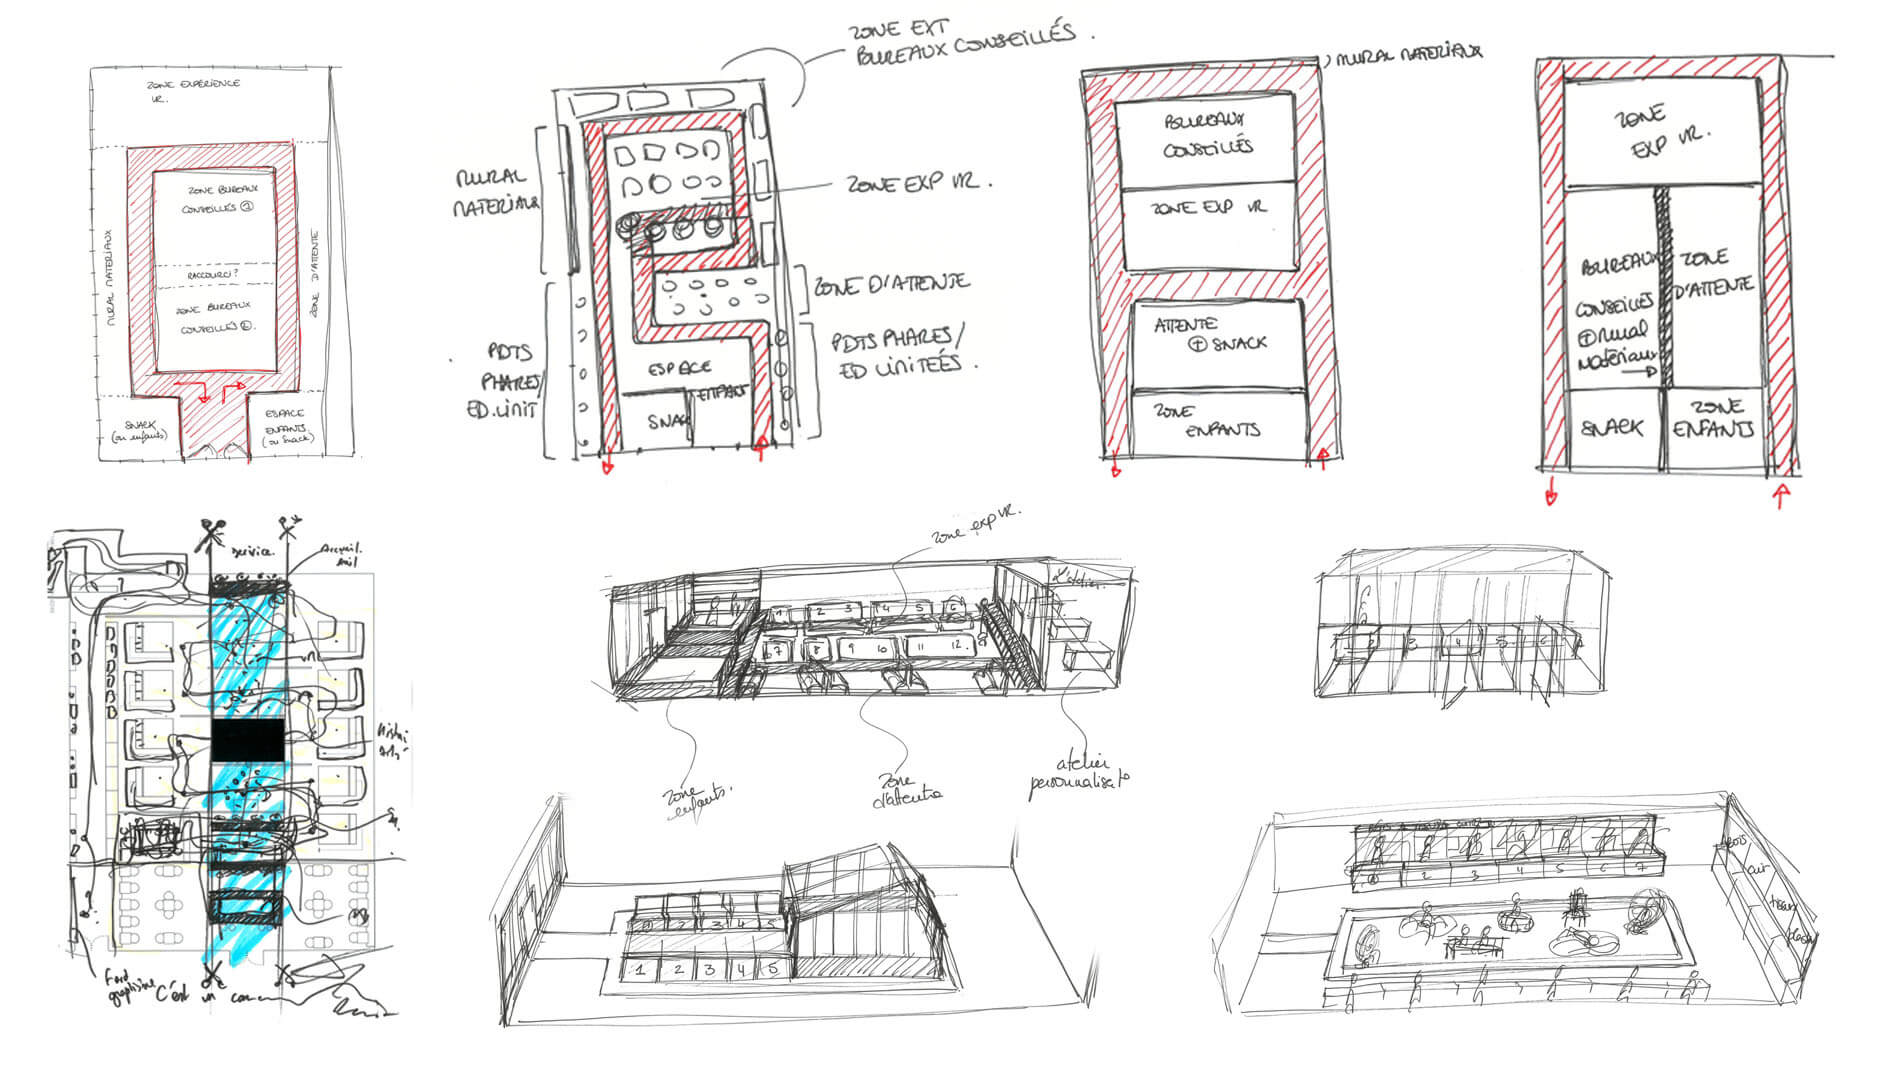 ZONE EXPÉRIENCE
VR.
ZONE BUREAUX
CONSEILLÉS ①
RACCOURCI?
ZONE BUREAUX
CONSEILLÉS ②.
MURAL MATERIAUX
ZONE D'ATTENTE
SNACK
(ou enfants)
ESPACE
ENFANTS
(ou snack)
ZONE EXT
BUREAUX CONSEILLÉS.
MURAL
MATERIAUX
ZONE EXP VR.
ZONE D'ATTENTE
PDTS
PHARES/
ED.LIMIT
PDTS PHARES/
ED LIMITEÉS.
ESPACE
ENFANT
SNACK
MURAL MATERIAUX
BUREAUX
CONSEILLÉS
ZONE EXP VR
ATTENTE
⊕ SNACK
ZONE
ENFANTS
ZONE
EXP VR.
BUREAUX
CONSEILLÉS
⊕ Mural
Matériaux
ZONE
D'ATTENTE
SNACK
ZONE
ENFANTS
service.
Accueil.
C'est un
zone exp VR.
L'atelier
1 2 3 4 5 6
7 8 9 10 11 12.
zone
enfants.
zone
d'attente
atelier
personnalisat°
3 4 5 6
1 2 3 4 5
1 2 3 4 5
2 3 4 5 6 7
bois
cuir
tissus